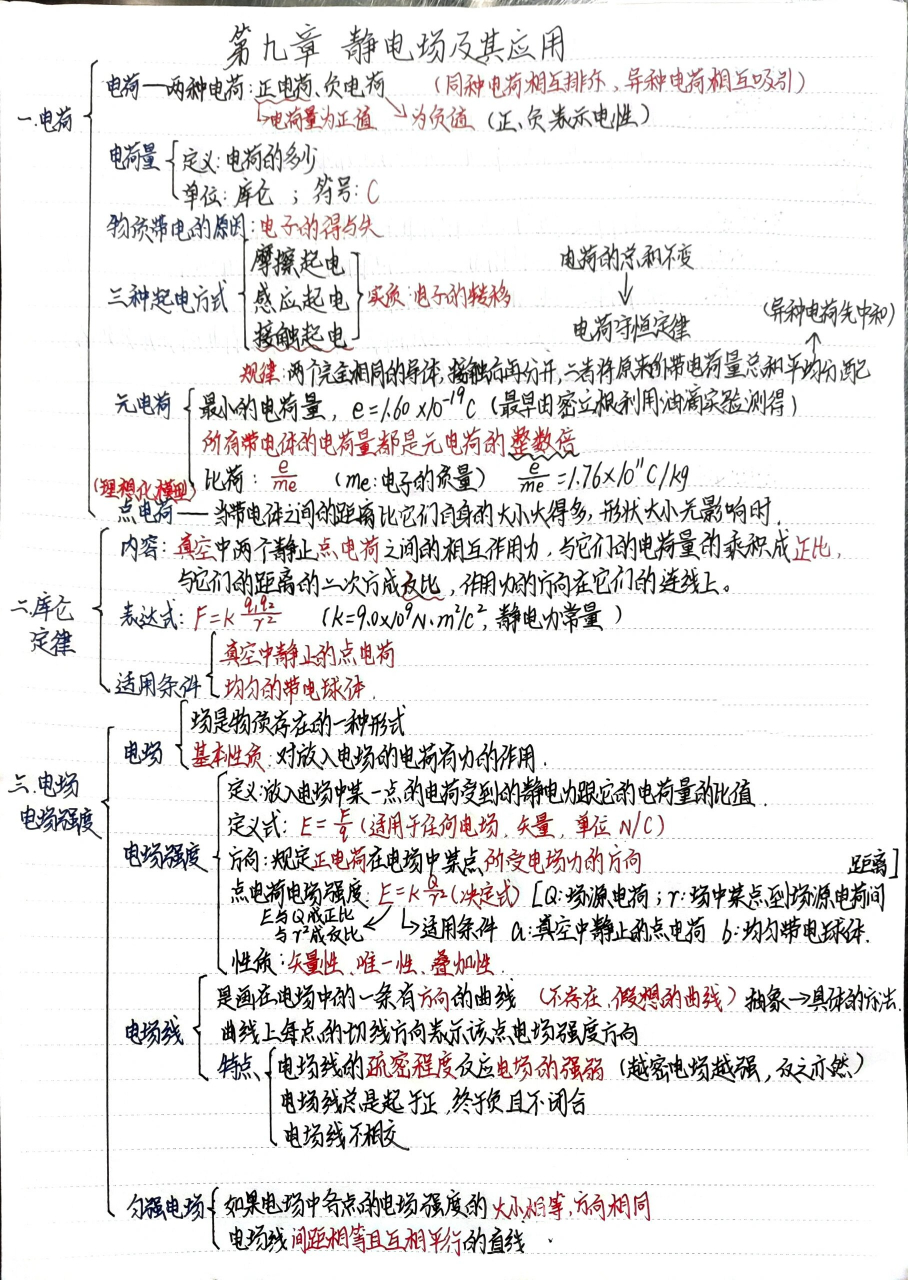 第九章 静电场及其应用
一.电荷
电荷——两种电荷:正电荷、负电荷 (同种电荷相互排斥,异种电荷相互吸引)
电荷量为正值 为负值 (正、负表示电性)
电荷量
定义:电荷的多少
单位:库仑 ; 符号:C
物质带电的原因:电子的得与失
三种起电方式
摩擦起电
感应起电
接触起电
实质:电子的转移
电荷的总和不变
↓
电荷守恒定律
(异种电荷先中和)
规律:两个完全相同的导体,接触后再分开,二者将原来的带电荷量总和平均分配
元电荷
最小的电荷量,e=1.60×10⁻¹⁹C (最早由密立根利用油滴实验测得)
所有带电体的电荷量都是元电荷的整数倍
比荷:e/me (me:电子的质量) e/me=1.76×10¹¹C/kg
(理想化模型)
点电荷——当带电体之间的距离比它们自身的大小大得多,形状大小无影响时.
二.库仑定律
内容:真空中两个静止点电荷之间的相互作用力,与它们的电荷量的乘积成正比,
与它们的距离的二次方成反比,作用力的方向在它们的连线上。
表达式:F=k q₁q₂/r² (k=9.0×10⁹N·m²/C²,静电力常量)
适用条件
真空中静止的点电荷
均匀的带电球体.
三.电场 电场强度
电场
场是物质存在的一种形式
基本性质:对放入电场的电荷有力的作用.
电场强度
定义:放入电场中某一点的电荷受到的静电力跟它的电荷量的比值.
定义式:E=F/q (适用于任何电场,矢量,单位N/C)
方向:规定正电荷在电场中某点所受电场力的方向
点电荷电场强度:E=k Q/r² (决定式) [Q:场源电荷;r:场中某点到场源电荷间距离]
E与Q成正比
与r²成反比
适用条件 a:真空中静止的点电荷 b:均匀带电球体.
性质:矢量性、唯一性、叠加性.
电场线
是画在电场中的一条有方向的曲线 (不存在,假想的曲线) 抽象→具体的方法.
曲线上每点的切线方向表示该点电场强度方向
特点
电场线的疏密程度反应电场的强弱 (越密电场越强,反之亦然)
电场线总是起于正,终于负且不闭合
电场线不相交
匀强电场
如果电场中各点的电场强度的大小相等,方向相同
电场线间距相等且互相平行的直线.